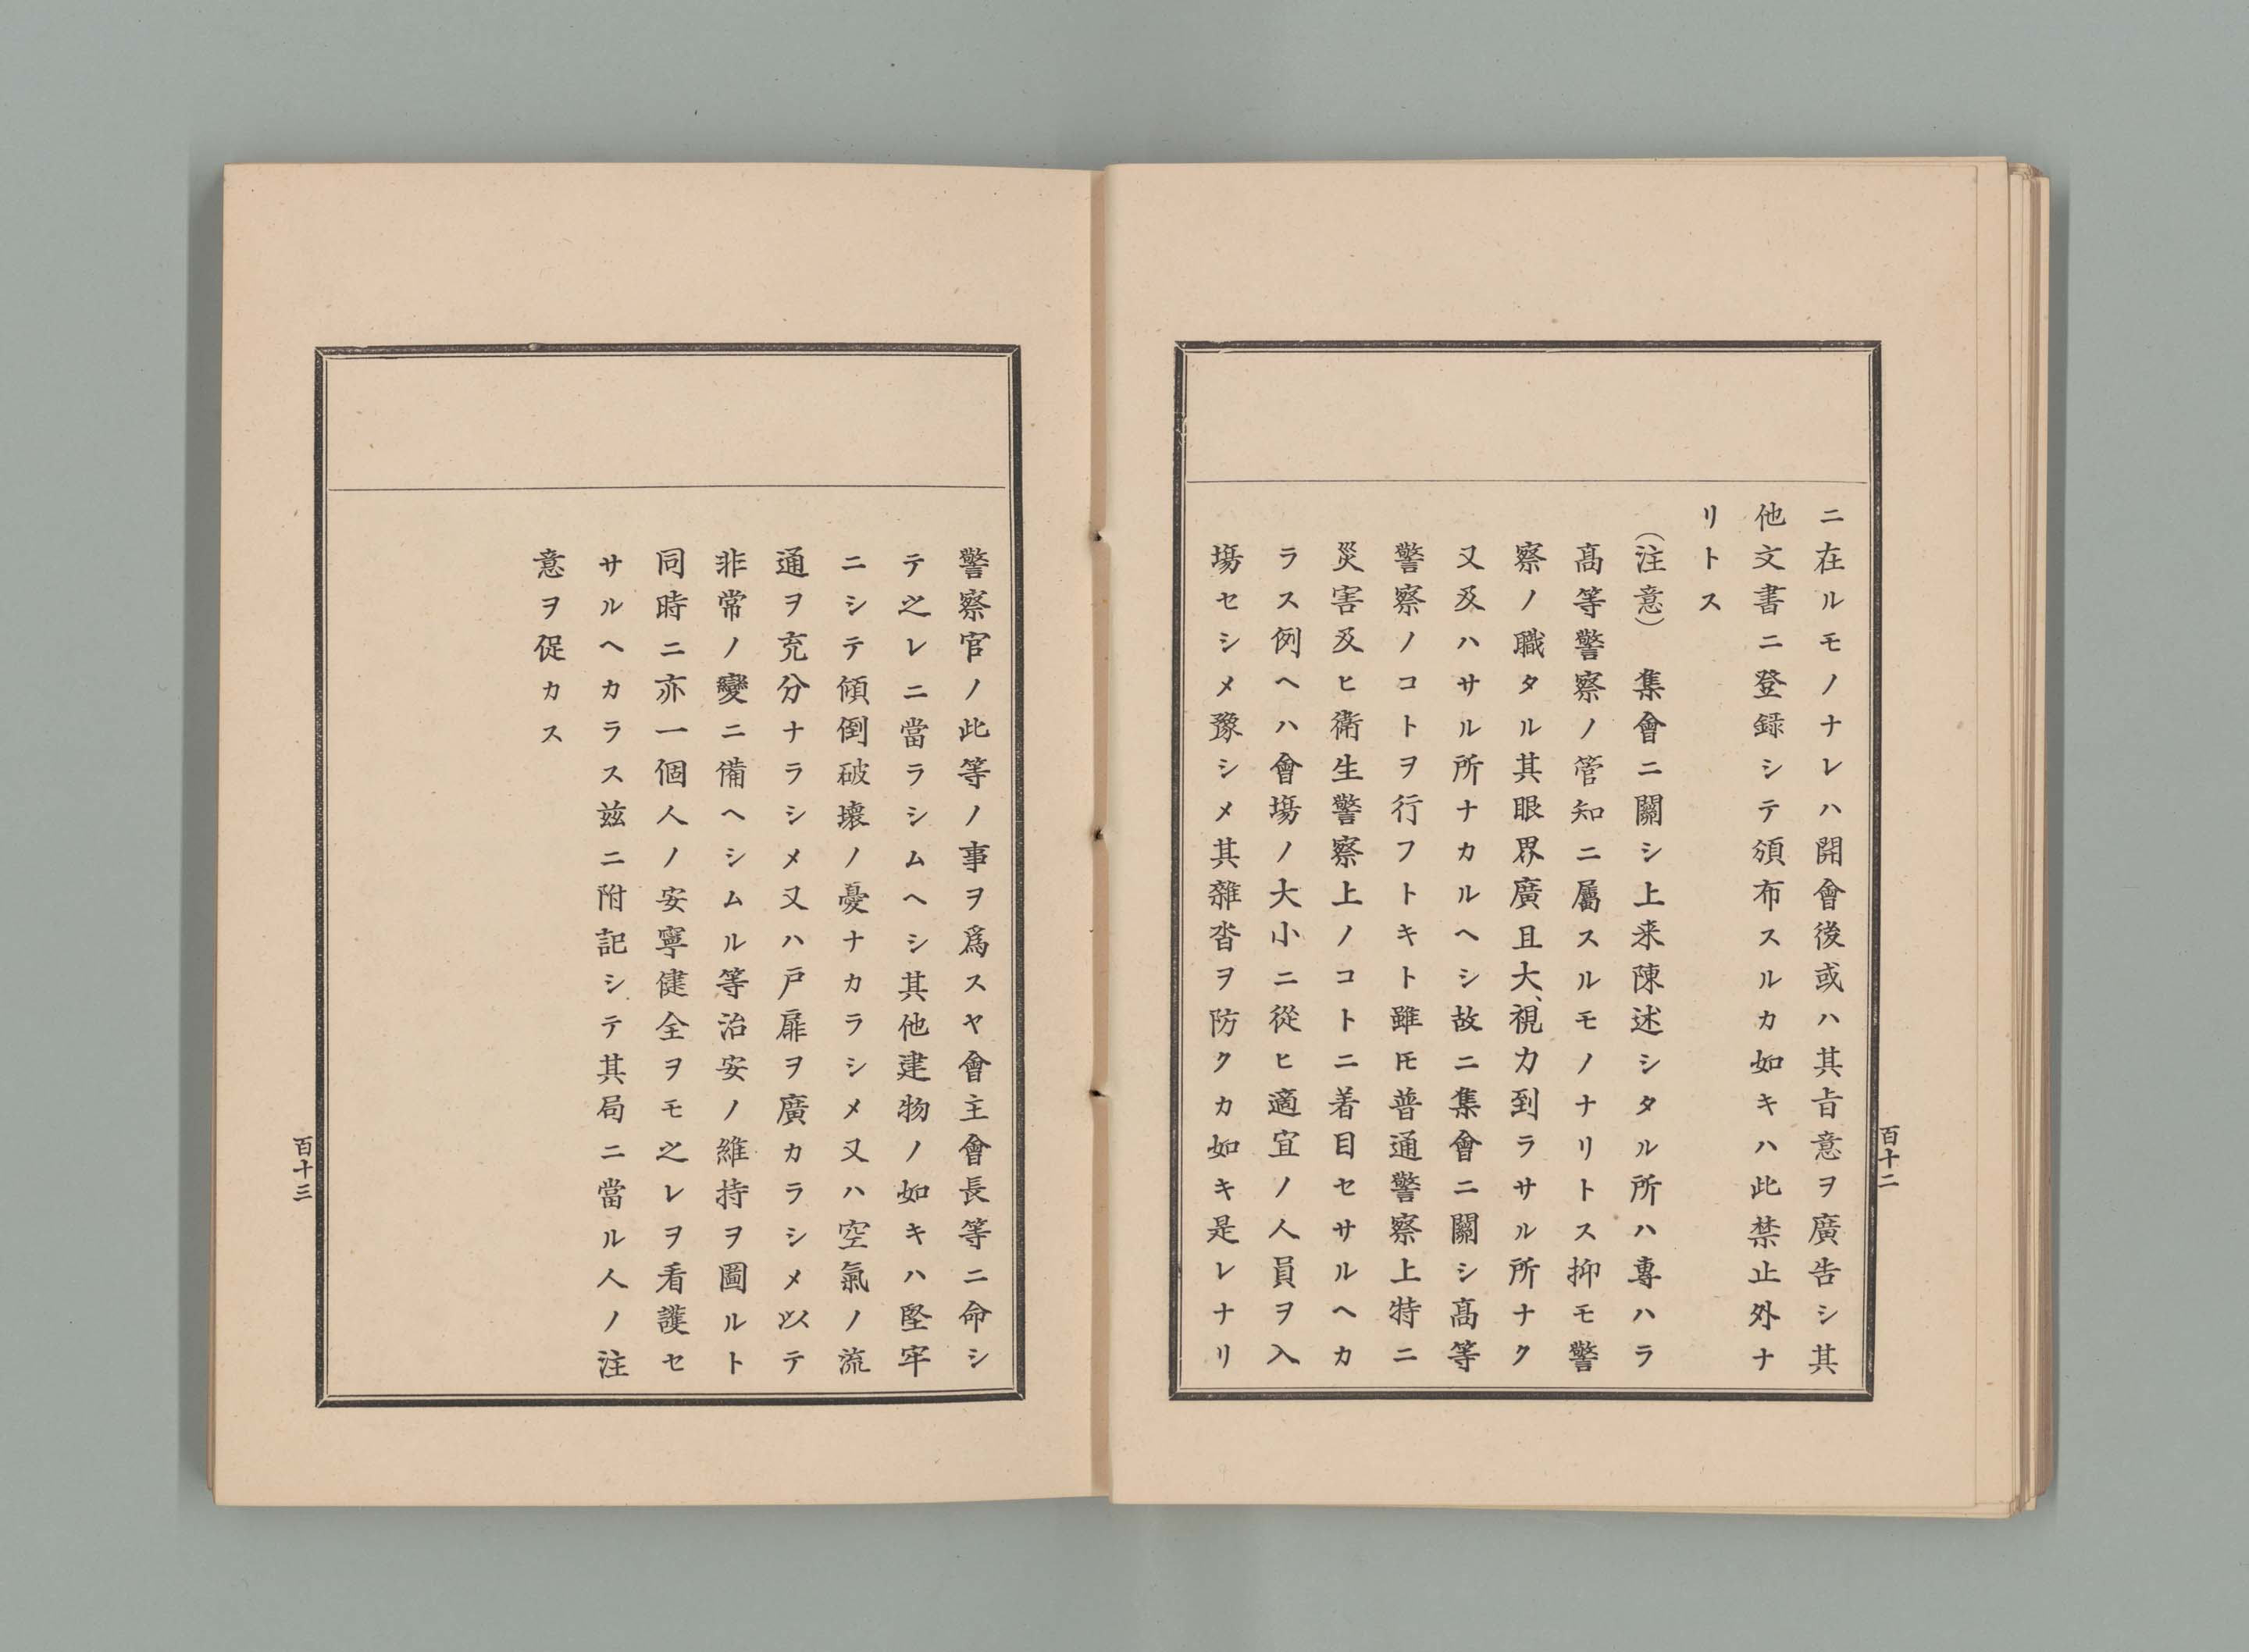 ニ在ルモノナレハ開會後或ハ其㫖意ヲ廣告シ其
他文書ニ登録シテ頒布スルカ如キハ此禁止外ナ
リトス
(注意)　集會ニ關シ上来陳述シタル所ハ專ハラ
髙等警察ノ管知ニ屬スルモノナリトス抑モ警
察ノ職タル其眼界廣且大、視力到ラサル所ナク
又及ハサル所ナカルヘシ故ニ集會ニ關シ髙等
警察ノコトヲ行フトキト雖𪜈普通警察上特ニ
災害及ヒ衛生警察上ノコトニ着目セサルヘカ
ラス例ヘハ會塲ノ大小ニ從ヒ適宜ノ人員ヲ入
塲セシメ豫シメ其雜沓ヲ防クカ如キ是レナリ
百十二
警察官ノ此等ノ事ヲ爲スヤ會主會長等ニ命シ
テ之レニ當ラシムヘシ其他建物ノ如キハ堅牢
ニシテ傾倒破壞ノ憂ナカラシメ又ハ空氣ノ流
通ヲ充分ナラシメ又ハ戸扉ヲ廣カラシメ以テ
非常ノ變ニ備ヘシムル等治安ノ維持ヲ圖ルト
同時ニ亦一個人ノ安寧健全ヲモ之レヲ看護セ
サルヘカラス玆ニ附記シテ其局ニ當ル人ノ注
意ヲ促カス
百十三